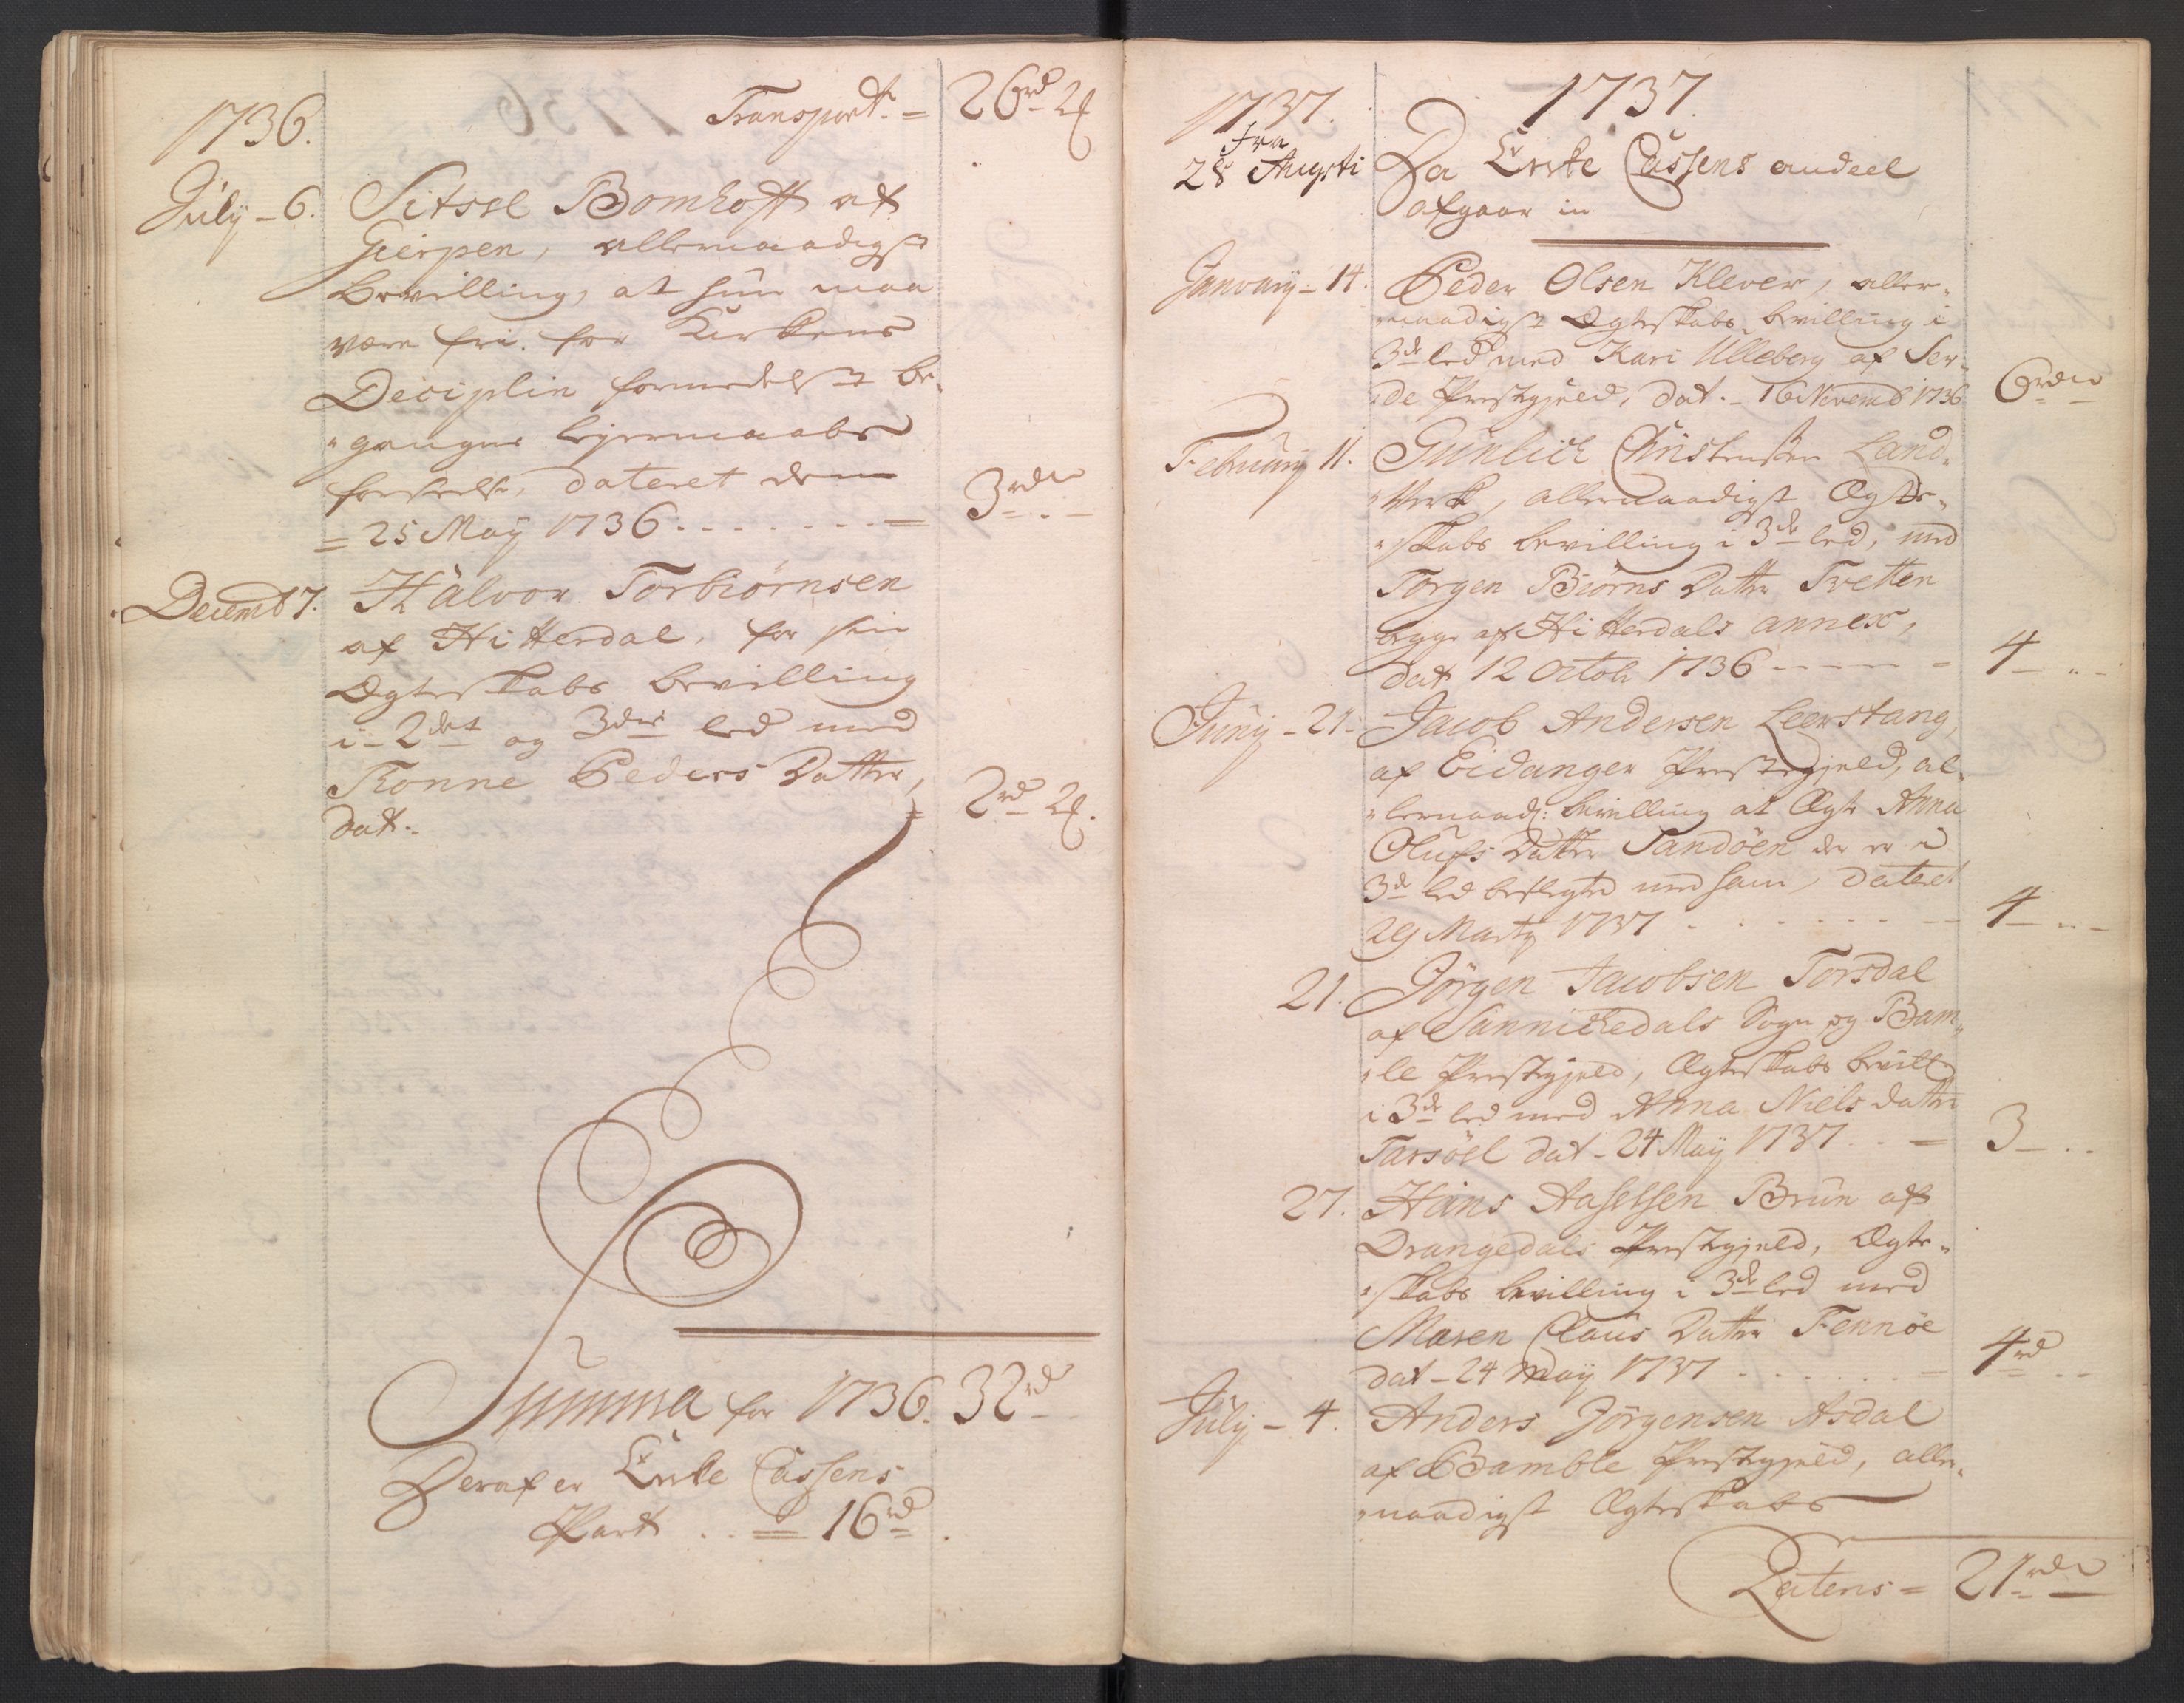 1736.
Transport. = 26 rd 2 ß
July - 6. Sitsel Bomhoff af
Gierpen, allernaadigst
bevilling, at hun maa
være fri for Kirkens
Deciplin formedelst be-
gangne lejermaals
forseelse, dateret den
= 25 May 1736 . . . . . = 3 rdr
Decemb 7. Halvor Torbiörnsen
af Hitterdal, for sin
Ægteskabs bevilling
i 2det og 3die led med
Tronne Peders Datter,
dat. = 2 rd 2 ß.
Summa for 1736. 32 rd
Deraf er Qvæst Cassens
Part . . = 16 rd
1737.
1737.
fra
28 Augsti Da Cassens andeel
afgaar in
January - 14. Peder Olsen Klever, aller-
naadigst Ægteskabs bevilling i
3de led med Kari Ulleberg af Ser-
de Prestegjeld, dat. 16 Novemb 1736 6 rdr
February 11. Gunlich Christensen Land-
verk, allernaadigst Ægte-
skabs bevilling i 3de led, med
Torgen Biörns Datter Tvetten
begge af Hitterdals annex,
dat 12 Octob 1736 - - - - = 4 - - -
Juny - 21. Jacob Andersen Leerstang,
af Eidanger Prestegjeld, al-
lernaad: bevilling at Ægte Anna
Olufs Datter Sandöen der er i
3de led beslegted med ham, dateret
29 Marty 1737 . . . . . . - 4 - - -
21. Jörgen Jacobsen Torsdal
af Sannickedals Sogn og Bam-
le Prestegjeld, Ægteskabs bevill
i 3de led med Anna Niels datter
Tarsöel dat - 24 May 1737 . . = 3 - . .
27. Hans Aslessen Brun af
Drangedals Prestegjeld, Ægte-
skabs bevilling i 3de led med
Maren Claus Datter Fennöe
dat - 24 May 1737 . . . . . . - 4 rd . .
July - 4. Anders Jörgensen Asdal
af Bamble Prestegjeld, aller-
naadigst Ægteskabs
Latens = 21 rdr